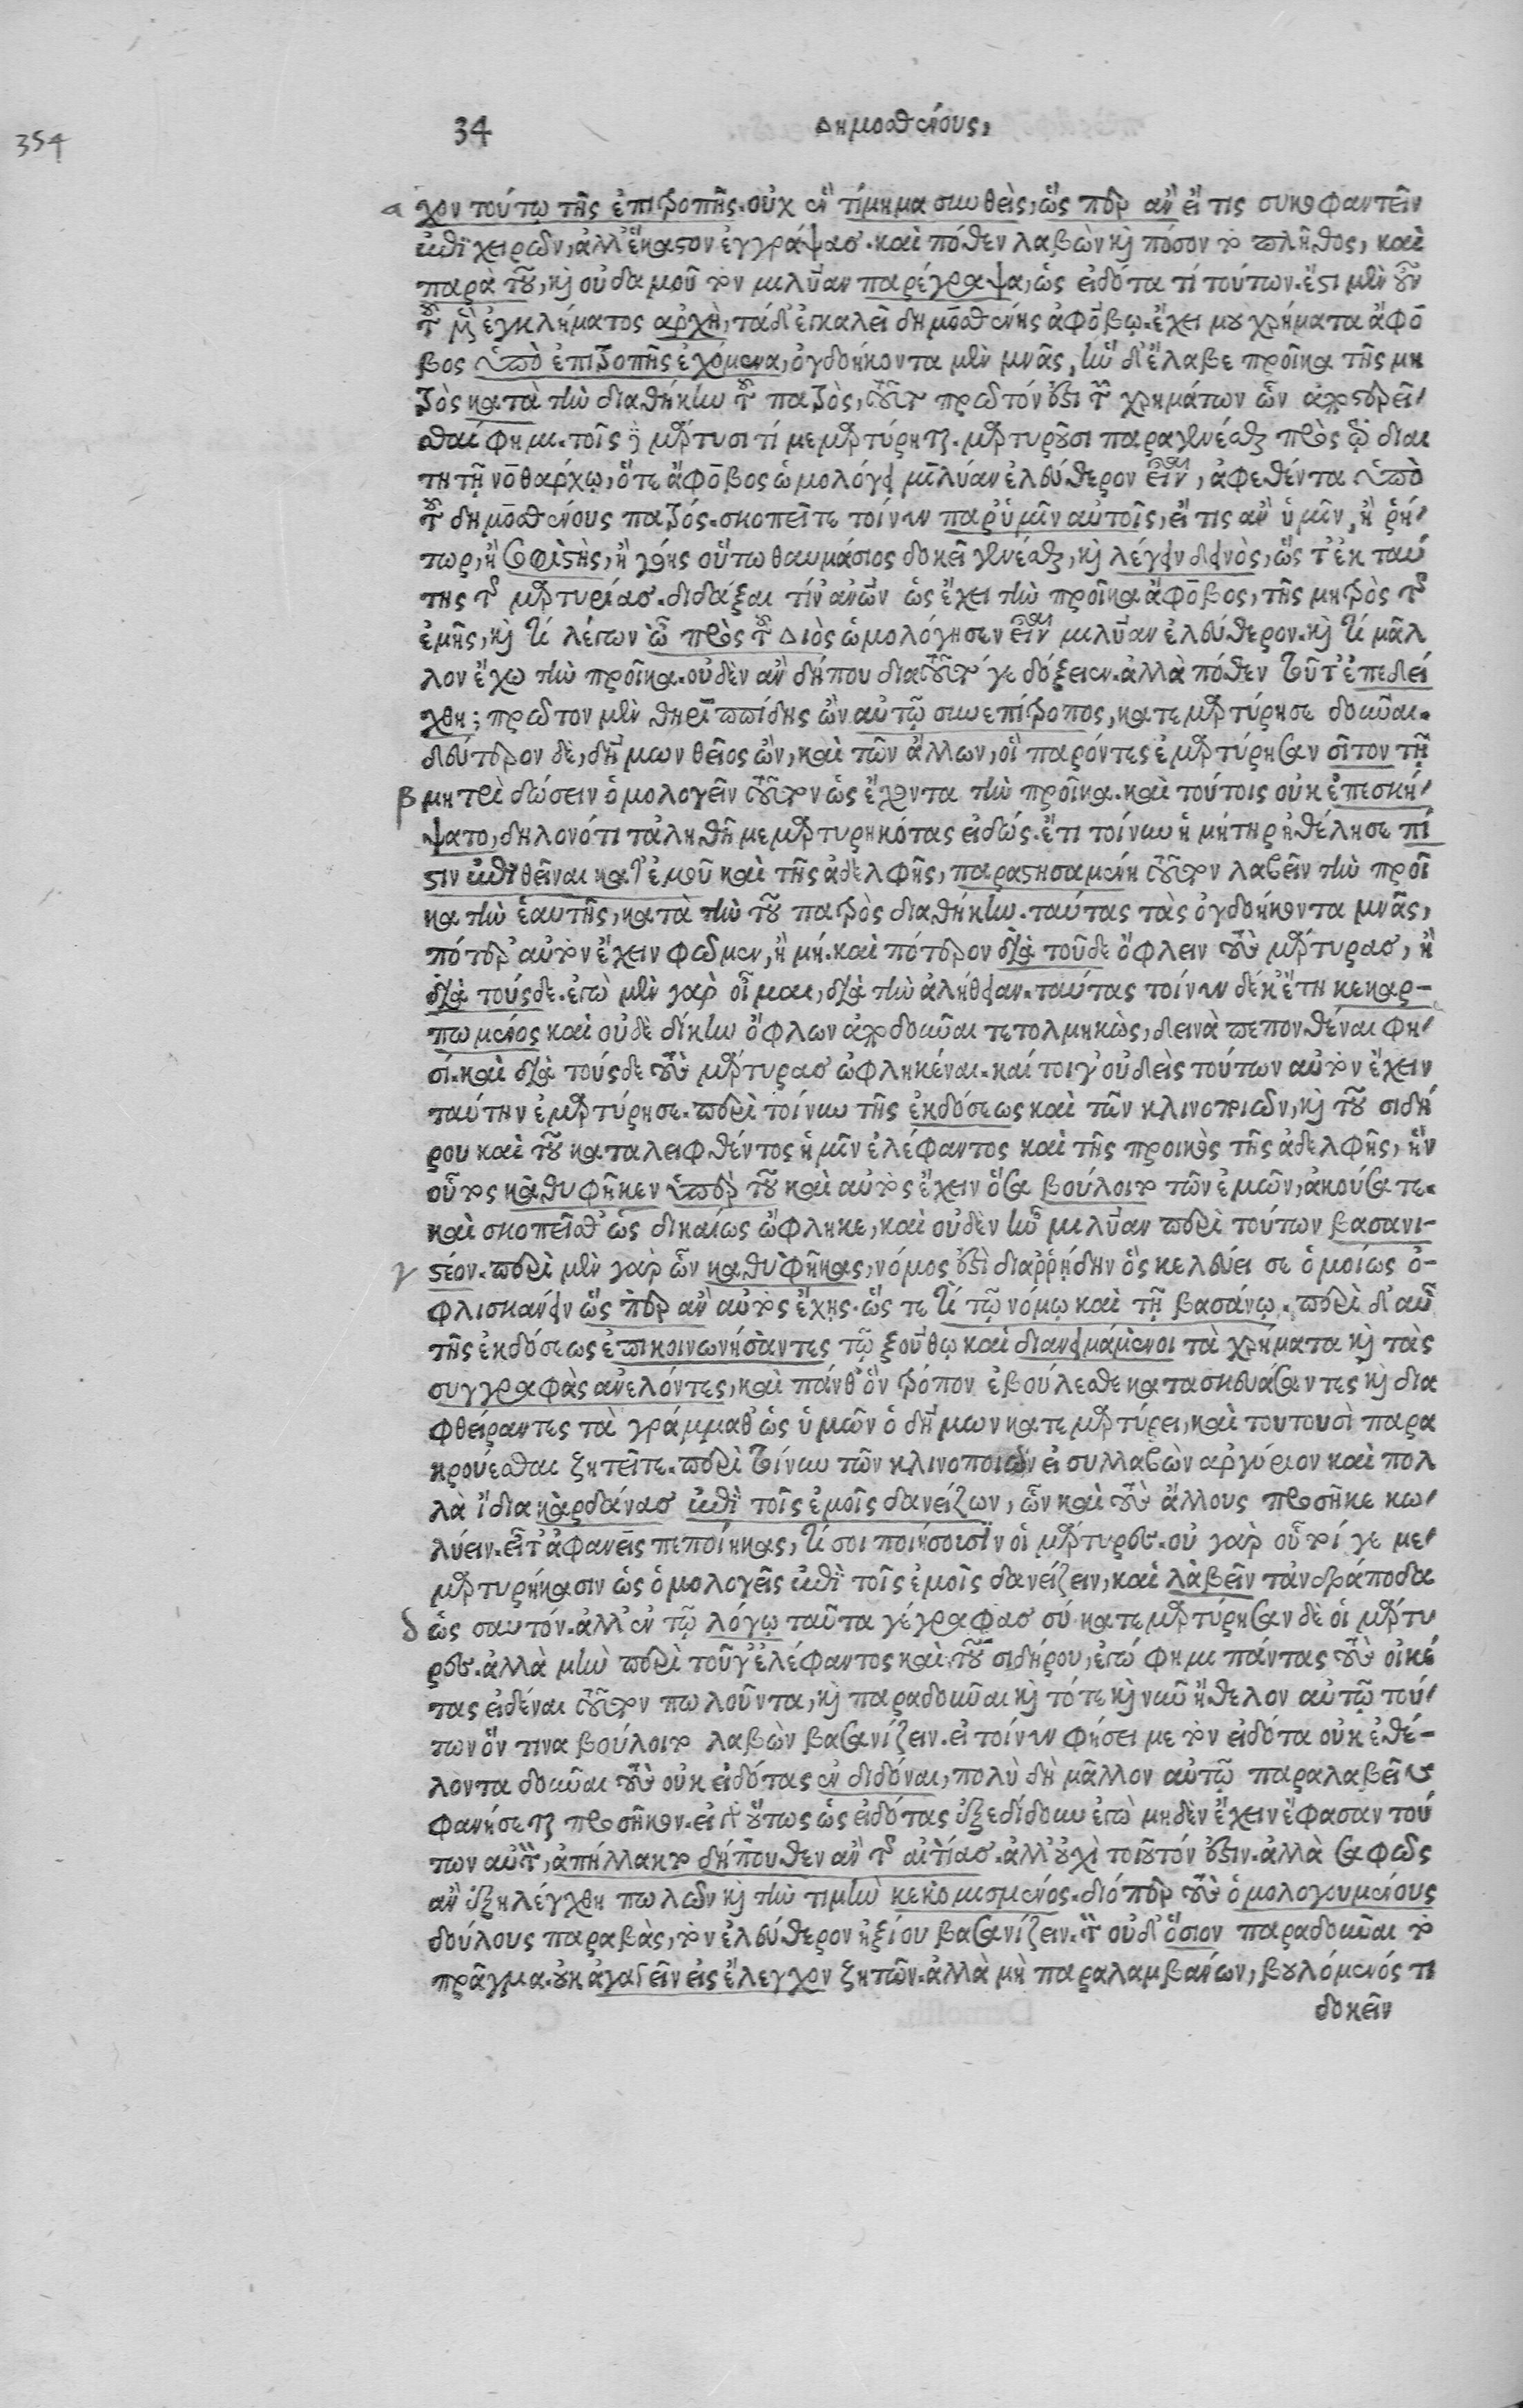 354
34
Δημοσθένους,
α χον τούτῳ τῆς ἐπιτροπῆς. οὐχ ἓν τίμημα συνθεὶς, ὥσπερ ἂν εἴ τις συκοφαντεῖν
ἐπιχειρῶν, ἀλλ' ἕκαστον ἐγγράψας. καὶ πόθεν λαβὼν καὶ πόσον τὸ πλῆθος, καὶ
παρὰ τοῦ, καὶ οὐδαμοῦ τὸν μιλύαν παρέγραψα, ὡς εἰδότα τί τούτων. ἔστι μὲν οὖν
τοῦ μὲν ἐγκλήματος ἀρχὴ, τάδ' ἐγκαλεῖ δημοσθένης ἀφόβῳ. ἔχει μου χρήματα ἄφο
βος ὑπὸ ἐπιτροπῆς ἐχόμενα, ὀγδοήκοντα μὲν μνᾶς, ἣν δ' ἔλαβε προῖκα τῆς μη
τρὸς κατὰ τὴν διαθήκην τοῦ πατρὸς, τοῦτο πρῶτόν ἐστι τῶν χρημάτων ὧν ἀποστερεῖ-
σθαί φημι. τοῖς δὲ μάρτυσι τί μεμαρτύρηται. μαρτυροῦσι παραγενέσθαι πρὸς τῷ διαι
τητῇ νοθάρχῳ, ὅτε ἄφοβος ὡμολόγει μιλύαν ἐλεύθερον εἶναι, ἀφεθέντα ὑπὸ
τοῦ δημοσθένους πατρός. σκοπεῖτε τοίνυν παρ' ὑμῖν αὐτοῖς, εἴ τις ἂν ὑμῖν, ἢ ῥή-
τωρ, ἢ σοφιστὴς, ἢ γόης οὕτω θαυμάσιος δοκεῖ γενέσθαι, καὶ λέγειν δεινὸς, ὥστ' ἐκ ταύ
της τῆς μαρτυρίας. διδάξαι τίν' ἀνθρώπων ὡς ἔχει τὴν προῖκα ἄφοβος, τῆς μητρὸς τῆς
ἐμῆς, καὶ τί λέγων ὦ πρὸς τοῦ Διὸς ὡμολόγησεν εἶναι μιλύαν ἐλεύθερον. καὶ τί μᾶλ
λον ἔχω τὴν προῖκα. οὐδὲν ἂν δήπου διὰ τοῦτό γε δόξειεν. ἀλλὰ πόθεν τοῦτ' ἐπεδεί
χθη; πρῶτον μὲν θηριππίδης ὢν αὐτῷ συνεπίτροπος, κατεμαρτύρησε δοῦναι.
δεύτερον δὲ, δήμων θεῖος ὢν, καὶ τῶν ἄλλων, οἳ παρόντες ἐμαρτύρησαν σῖτον τῇ
β μητρὶ δώσειν ὁμολογεῖν τοῦτον ὡς ἔχοντα τὴν προῖκα. καὶ τούτοις οὐκ ἐπεσκή-
ψατο, δηλονότι τἀληθῆ μεμαρτυρηκότας εἰδώς. ἔτι τοίνυν ἡ μήτηρ ἠθέλησε πί
στιν ἐπιθεῖναι κατ' ἐμοῦ καὶ τῆς ἀδελφῆς, παραστησαμένη τοῦτον λαβεῖν τὴν προῖ
κα τὴν ἑαυτῆς, κατὰ τὴν τοῦ πατρὸς διαθήκην. ταύτας τὰς ὀγδοήκοντα μνᾶς,
πότερ' αὐτὸν ἔχειν φῶμεν, ἢ μή. καὶ πότερον διὰ τοῦδε ὄφλειν τοὺς μάρτυρας, ἢ
διὰ τούσδε. ἐγὼ μὲν γὰρ οἶμαι, διὰ τὴν ἀλήθειαν. ταύτας τοίνυν δέκ' ἔτη κεκαρ-
πωμένος καὶ οὐδὲ δίκην ὄφλων ἀποδοῦναι τετολμηκὼς, δεινὰ πεπονθέναι φη-
σί. καὶ διὰ τούσδε τοὺς μάρτυρας ὠφληκέναι. καί τοι γ' οὐδεὶς τούτων αὐτὸν ἔχειν
ταύτην ἐμαρτύρησε. περὶ τοίνυν τῆς ἐκδόσεως καὶ τῶν κλινοποιῶν, καὶ τοῦ σιδή
ρου καὶ τοῦ καταλειφθέντος ἡμῖν ἐλέφαντος καὶ τῆς προικὸς τῆς ἀδελφῆς, ἣν
οὗτος καθυφῆκεν ὑπὲρ τοῦ καὶ αὐτὸς ἔχειν ὅσα βούλοιτο τῶν ἐμῶν, ἀκούσατε.
καὶ σκοπεῖσθ' ὡς δικαίως ὤφληκε, καὶ οὐδὲν ἦν μιλύαν περὶ τούτων βασανι-
γ στέον. περὶ μὲν γὰρ ὧν καθυφῆκας, νόμος ἐστὶ διαρρήδην ὃς κελεύει σε ὁμοίως ὀ-
φλισκάνειν ὥσπερ ἂν αὐτὸς ἔχῃς. ὥς τε τί τῷ νόμῳ καὶ τῇ βασάνῳ. περὶ δ' αὖ
τῆς ἐκδόσεως ἐπικοινωνήσαντες τῷ ξούθῳ καὶ διανειμάμενοι τὰ χρήματα καὶ τὰς
συγγραφὰς ἀνελόντες, καὶ πάνθ' ὃν τρόπον ἐβούλεσθε κατασκευάσαντες καὶ δια
φθείραντες τὰ γράμμαθ' ὡς ὑμῶν ὁ δήμων κατεμαρτύρει, καὶ τουτουσὶ παρα
κρούεσθαι ζητεῖτε. περὶ τοίνυν τῶν κλινοποιῶν εἰ συλλαβὼν ἀργύριον καὶ πολ
λὰ ἴδια κερδάνας ἐπὶ τοῖς ἐμοῖς δανείζων, ὧν καὶ τοὺς ἄλλους προσῆκε κω-
λύειν. εἶτ' ἀφανεῖς πεποίηκας, τί σοι ποιήσουσιν οἱ μάρτυρες. οὐ γὰρ οὗτοί γε με-
μαρτυρήκασιν ὡς ὁμολογεῖς ἐπὶ τοῖς ἐμοῖς δανείζειν, καὶ λαβεῖν τἀνδράποδα
δ ὡς σαυτόν. ἀλλ' ἐν τῷ λόγῳ ταῦτα γέγραφας σύ κατεμαρτύρησαν δὲ οἱ μάρτυ
ρες. ἀλλὰ μὴν περὶ τοῦ γ' ἐλέφαντος καὶ τοῦ σιδήρου, ἐγώ φημι πάντας τοὺς οἰκέ
τας εἰδέναι τοῦτον πωλοῦντα, καὶ παραδοῦναι καὶ τότε καὶ νῦν ἤθελον αὐτῷ τού-
των ὅν τινα βούλοιτο λαβὼν βασανίζειν. εἰ τοίνυν φήσει με τὸν εἰδότα οὐκ ἐθέ-
λοντα δοῦναι τοὺς οὐκ εἰδότας ἐνδιδόναι, πολὺ δὴ μᾶλλον αὐτῷ παραλαβεῖν
φανήσεται προσῆκον. εἰ γὰρ οὕτως ὡς εἰδότας ἐξεδίδουν ἐγὼ μηδὲν ἔχειν ἔφασαν τού
των αὐτὸν, ἀπήλλακτο δήπουθεν ἂν τῆς αἰτίας. ἀλλ' οὐχὶ τοιοῦτόν ἐστιν. ἀλλὰ σαφῶς
ἂν ἐξηλέγχθη πωλῶν καὶ τὴν τιμὴν κεκομισμένος. διόπερ τοὺς ὁμολογουμένους
δούλους παραβὰς, τὸν ἐλεύθερον ἠξίου βασανίζειν. ὃν οὐδ' ὅσιον παραδοῦναι τὸ
πρᾶγμα. οὐκ ἀγαγεῖν εἰς ἔλεγχον ζητῶν. ἀλλὰ μὴ παραλαμβάνων, βουλόμενός τι
δοκεῖν